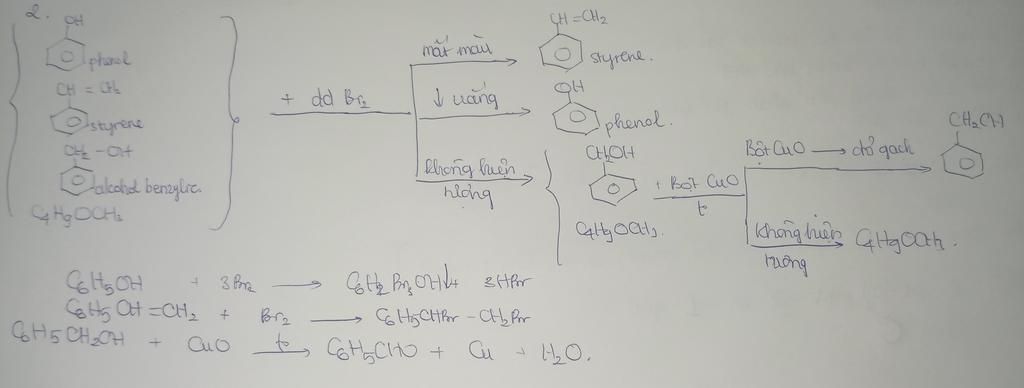 2.
OH
phenol
CH = CH2
styrene
CH2 - OH
alcohol benzylic.
C4H9OCH3
+ dd Br2
mất màu
CH=CH2
styrene.
↓ trắng
OH
phenol.
không hiện tượng
CH2OH
C4H9OCH3.
+ Bột CuO
t°
Bột CuO → đỏ gạch
CH2OH
không hiện tượng
C4H9OCH3.
C6H5OH + 3Br2 → C6H2Br3OH↓ + 3HBr
C6H5CH=CH2 + Br2 → C6H5CHBr - CH2Br
C6H5CH2OH + CuO t° → C6H5CHO + Cu + H2O.